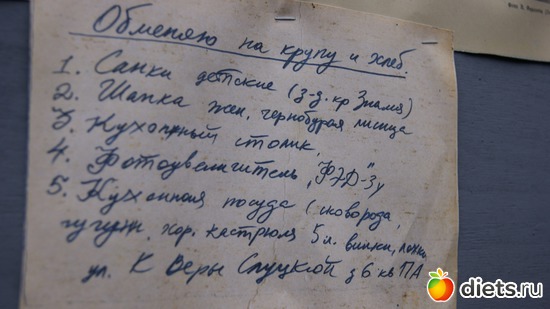 Обменяю на крупу и хлеб.
1. Санки детские (з-д. кр Знамя)
2. Шапка жен, чернобурая лисица
3. Кухонный столик,
4. Фотоувеличитель, "ФЭД"-3у
5. Кухонная посуда (сковорода,
чугун, хор. кастрюля 5 л. вилки, ложки
ул. К Веры Слуцкой д 6 кв ПА
diets.ru